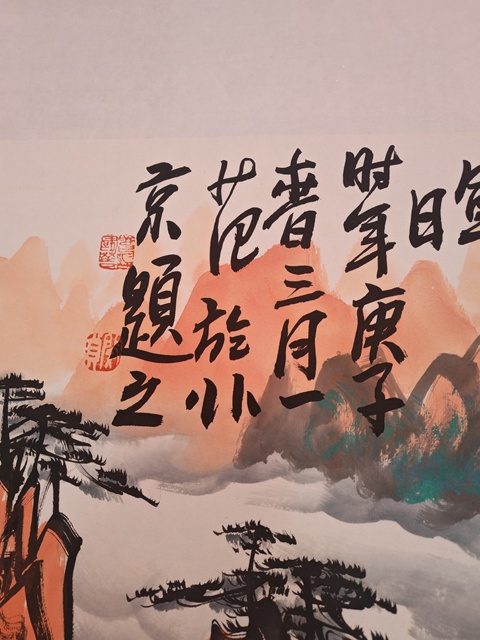 日
时年庚子
春三月一
范於北
京題之